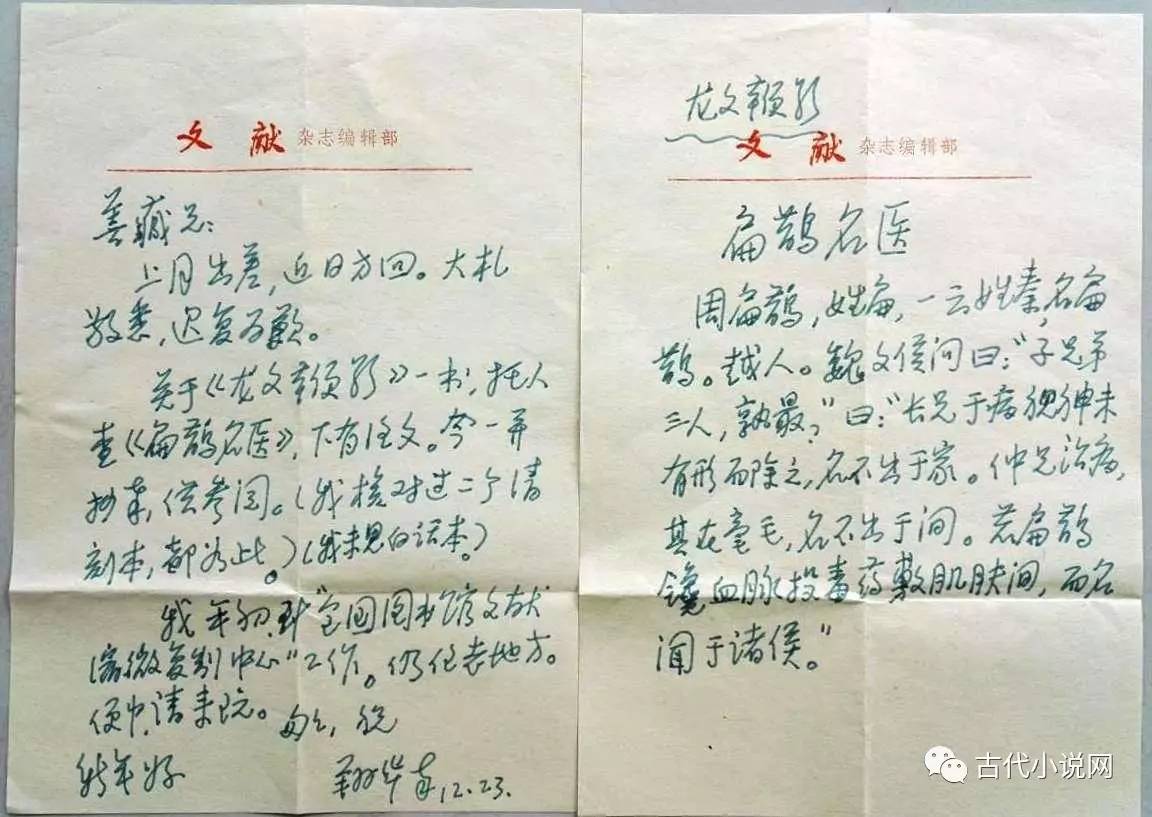 文献 杂志编辑部
善臧兄:
上月出差,近日方回。大札
敬悉,迟复为歉。
关于《龙文鞭影》一书,托人
查《扁鹊名医》,下有注文。今一并
抄奉,供参阅。(我核对过二个清
刻本,都如此。)(我未见白话本。)
我年初到"全国图书馆文献
缩微复制中心"工作。仍住老地方。
便中请来玩。匆匆,祝
新年好
翔华 12.23.
龙文鞭影
文献 杂志编辑部
扁鹊名医
周扁鹊,姓扁,一云姓秦,名扁
鹊。越人。魏文侯问曰:"子兄弟
三人,孰最?"曰:"长兄于病视神未
有形而除之,名不出于家。仲兄治病,
其在毫毛,名不出于闾。若扁鹊
镵血脉投毒药敷肌肤间,而名
闻于诸侯。"
古代小说网